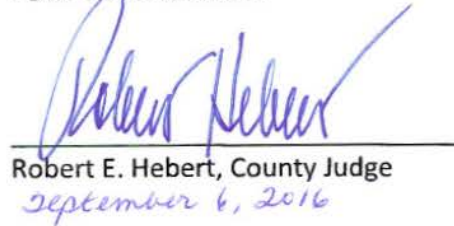 Robert Hebert
Robert E. Hebert, County Judge
September 6, 2016